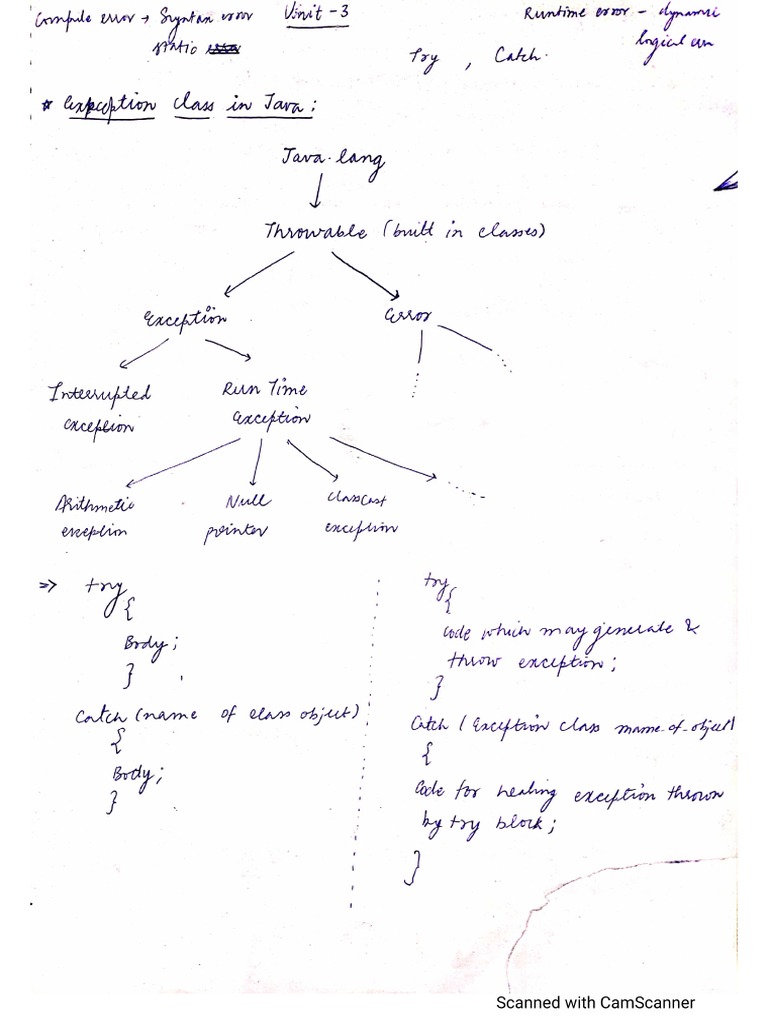 Compile error → Syntax error Unit - 3 Runtime error - dynamic
static logical err
Try , Catch.
* Exception Class in Java:
Java.lang
Throwable (built in classes)
Exception Error
Interrupted Run Time
exception exception
Arithmetic Null ClassCast
exception pointer exception
⇒ try try
{ {
Body; code which may generate &
} throw exception;
}
Catch (name of class object) Catch ( Exception class name-of-object)
{ {
Body; Code for healing exception thrown
} by try block;
}
Scanned with CamScanner